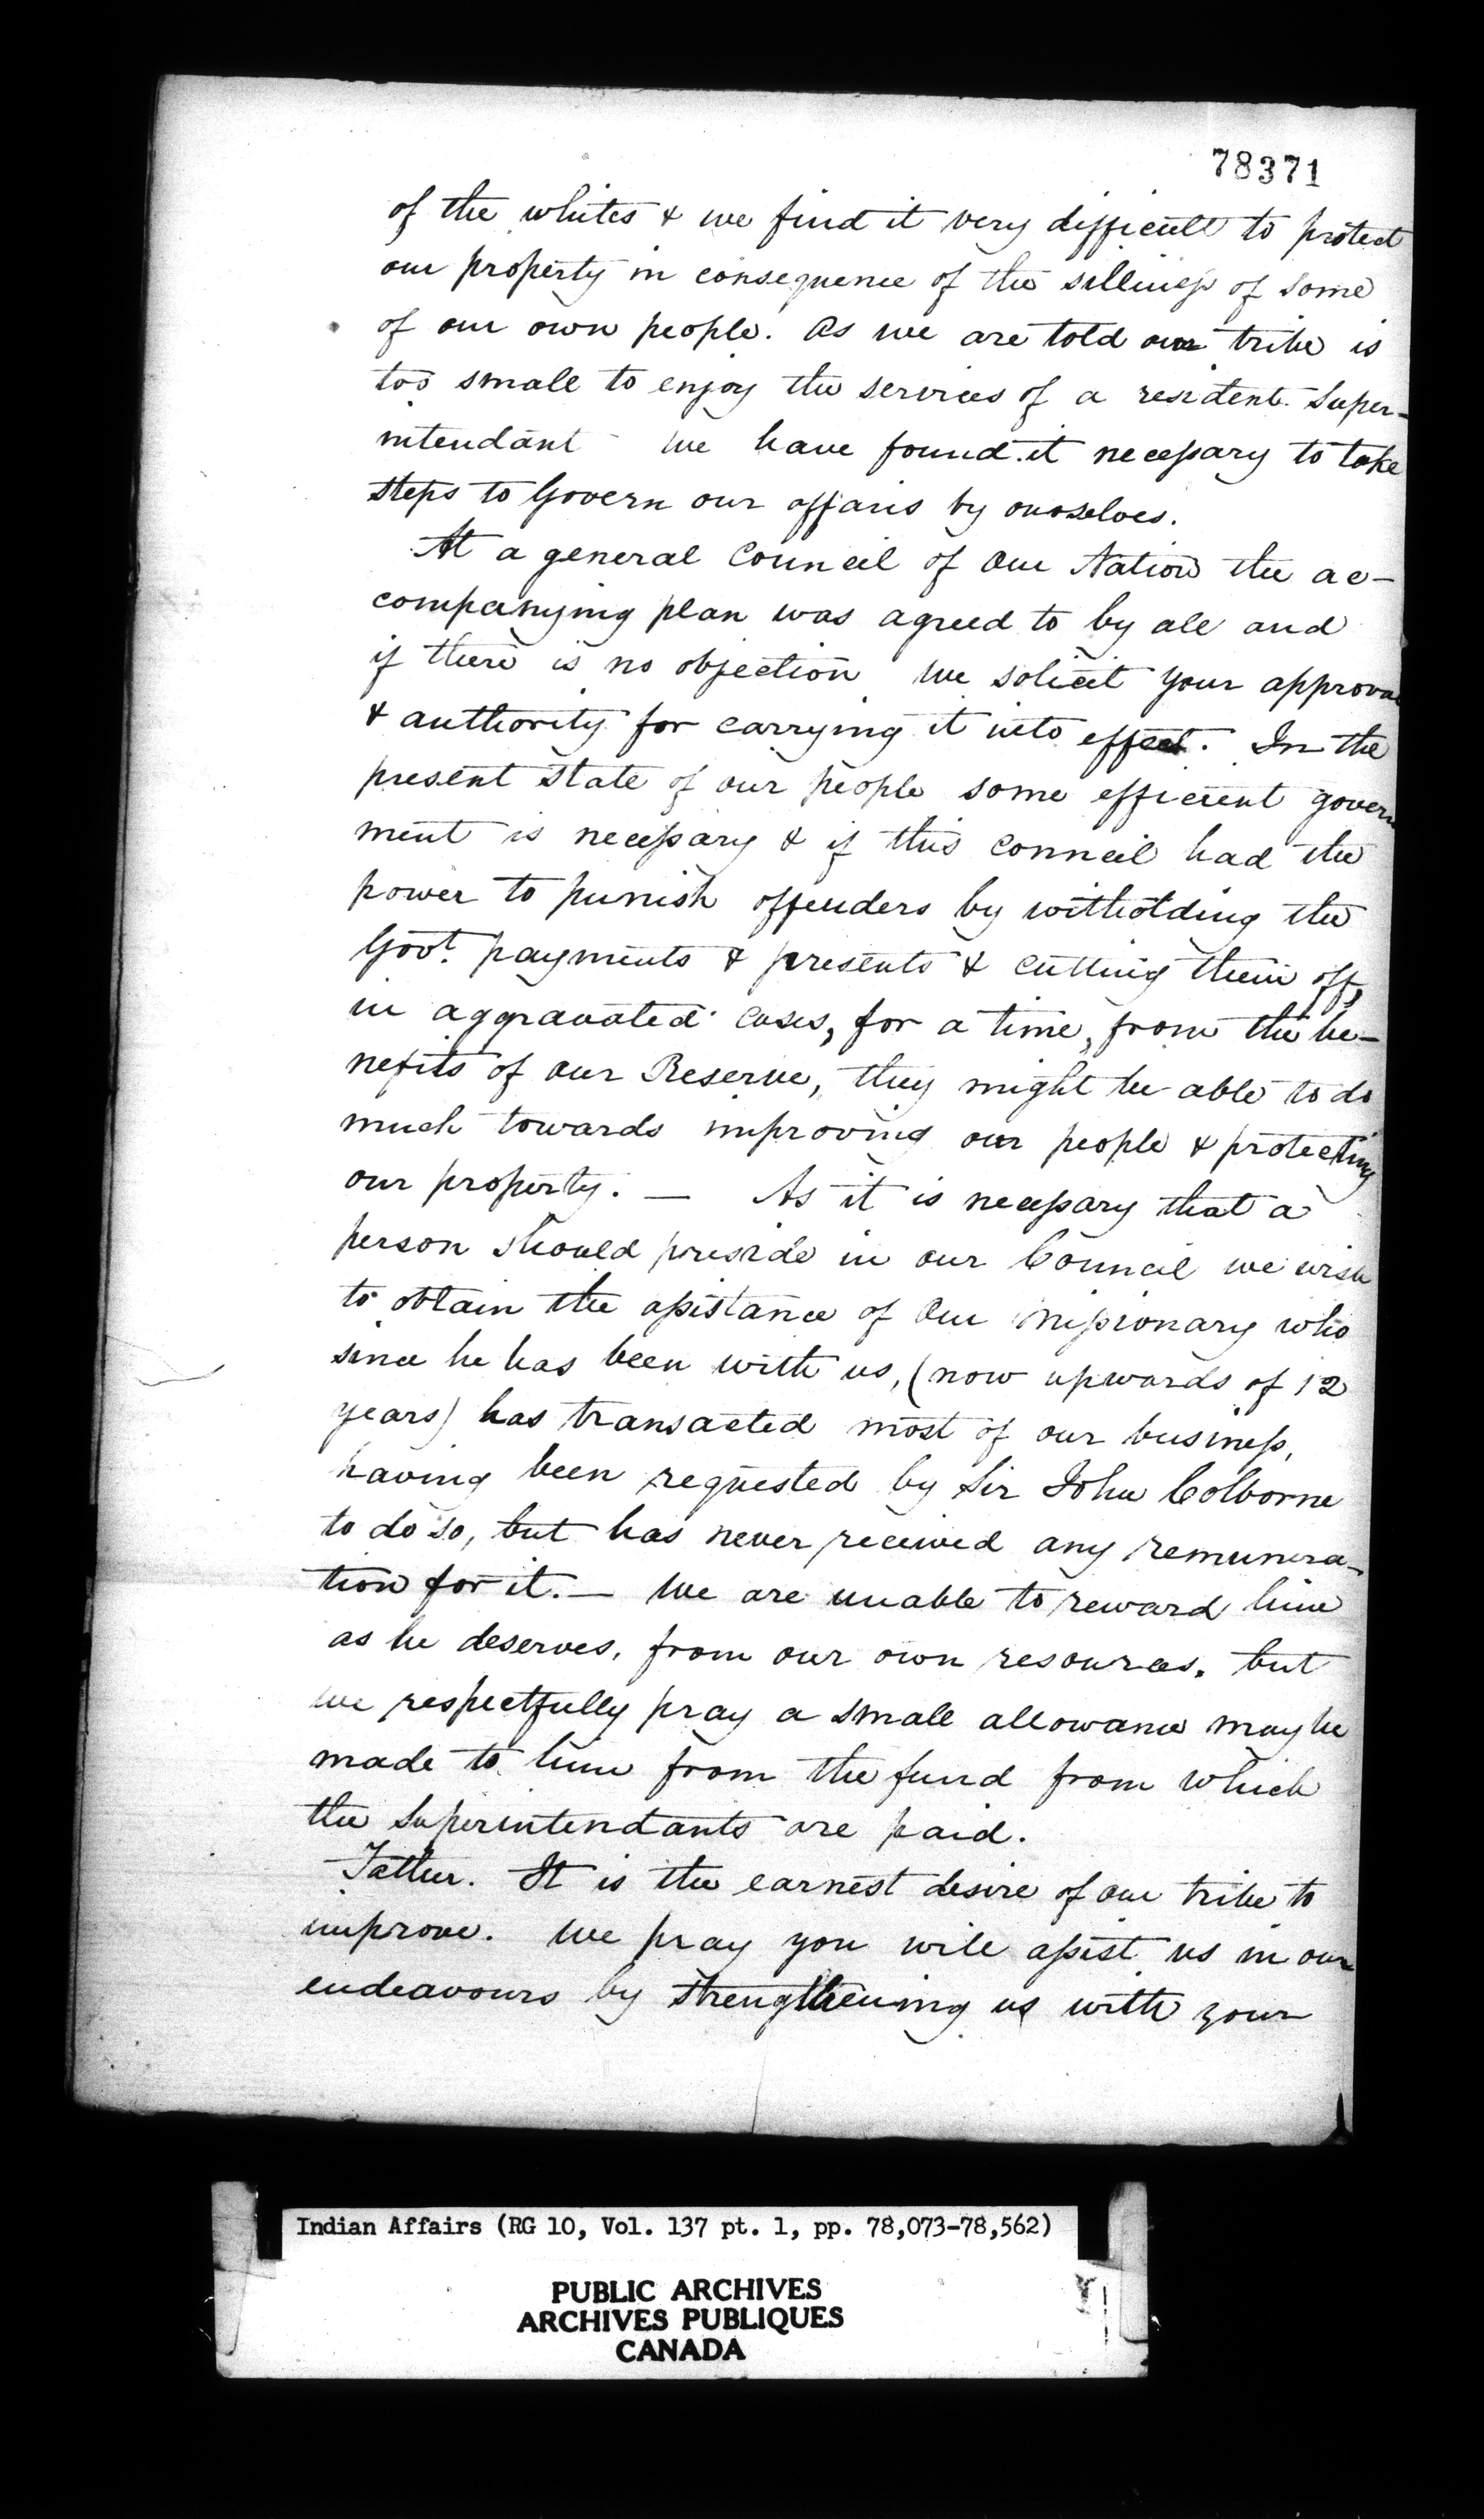 78371
of the whites & we find it very difficult to protect
our property in consequence of the silliness of some
of our own people. As we are told our tribe is
too small to enjoy the services of a resident Super-
intendant we have found it necessary to take
steps to Govern our affairs by ourselves.
At a general Council of Our Nation the ac-
companying plan was agreed to by all and
if there is no objection we solicit your approval
& authority for carrying it into effect. In the
present state of our people some efficient govern
ment is necessary & if this council had the
power to punish offenders by witholding the
Govt. payments & presents & cutting them off,
in aggravated cases, for a time, from the be-
nefits of our Reserve, they might be able to do
much towards improving our people & protecting
our property. — As it is necessary that a
person should preside in our Council we wish
to obtain the assistance of Our Missionary who
since he has been with us, (now upwards of 12
years) has transacted most of our business,
having been requested by Sir John Colborne
to do so, but has never received any remunera-
tion for it. — We are unable to reward him
as he deserves, from our own resources, but
we respectfully pray a small allowance may be
made to him from the fund from which
the Superintendants are paid.
Father. It is the earnest desire of our tribe to
improve. We pray you will assist us in our
endeavours by strengthening us with your
Indian Affairs (RG 10, Vol. 137 pt. 1, pp. 78,073-78,562)
PUBLIC ARCHIVES
ARCHIVES PUBLIQUES
CANADA